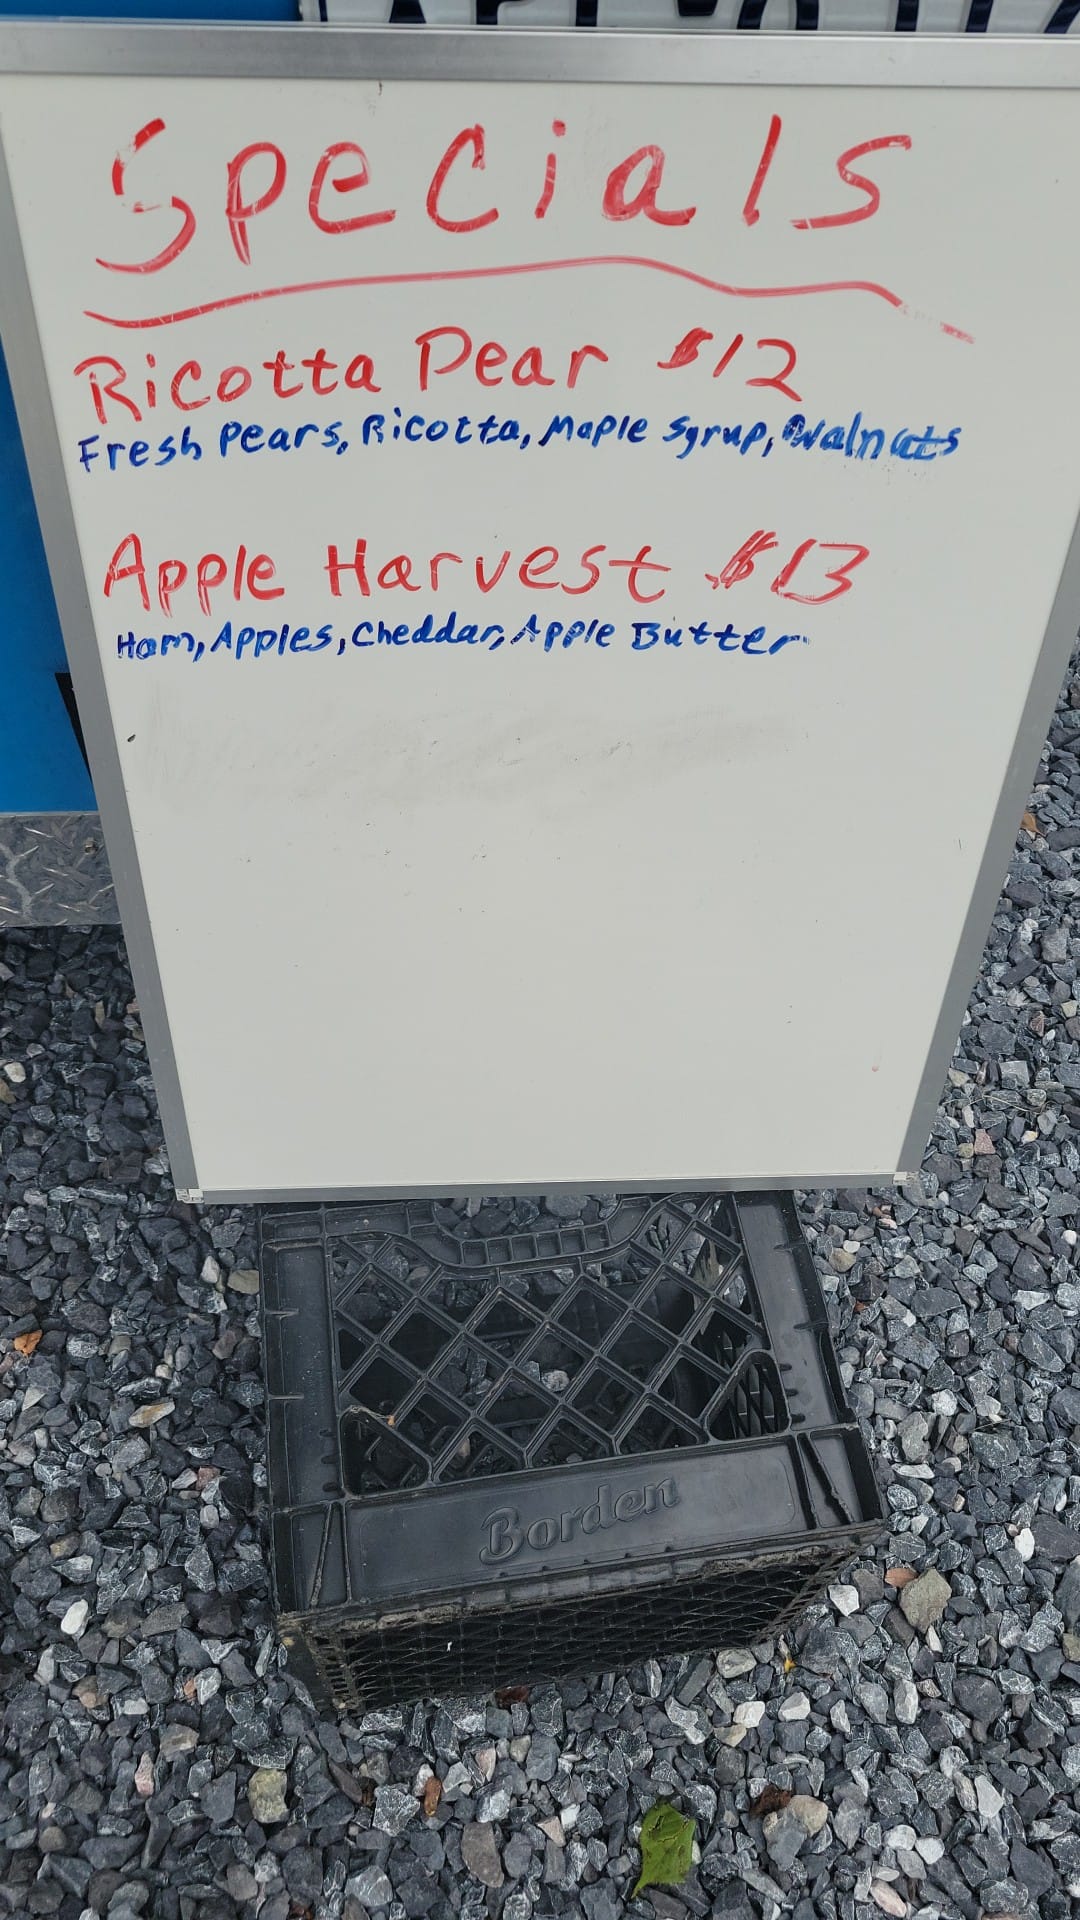 Specials
Ricotta Pear $12
Fresh Pears, Ricotta, Maple Syrup, Walnuts
Apple Harvest $13
Ham, Apples, Cheddar, Apple Butter
Borden